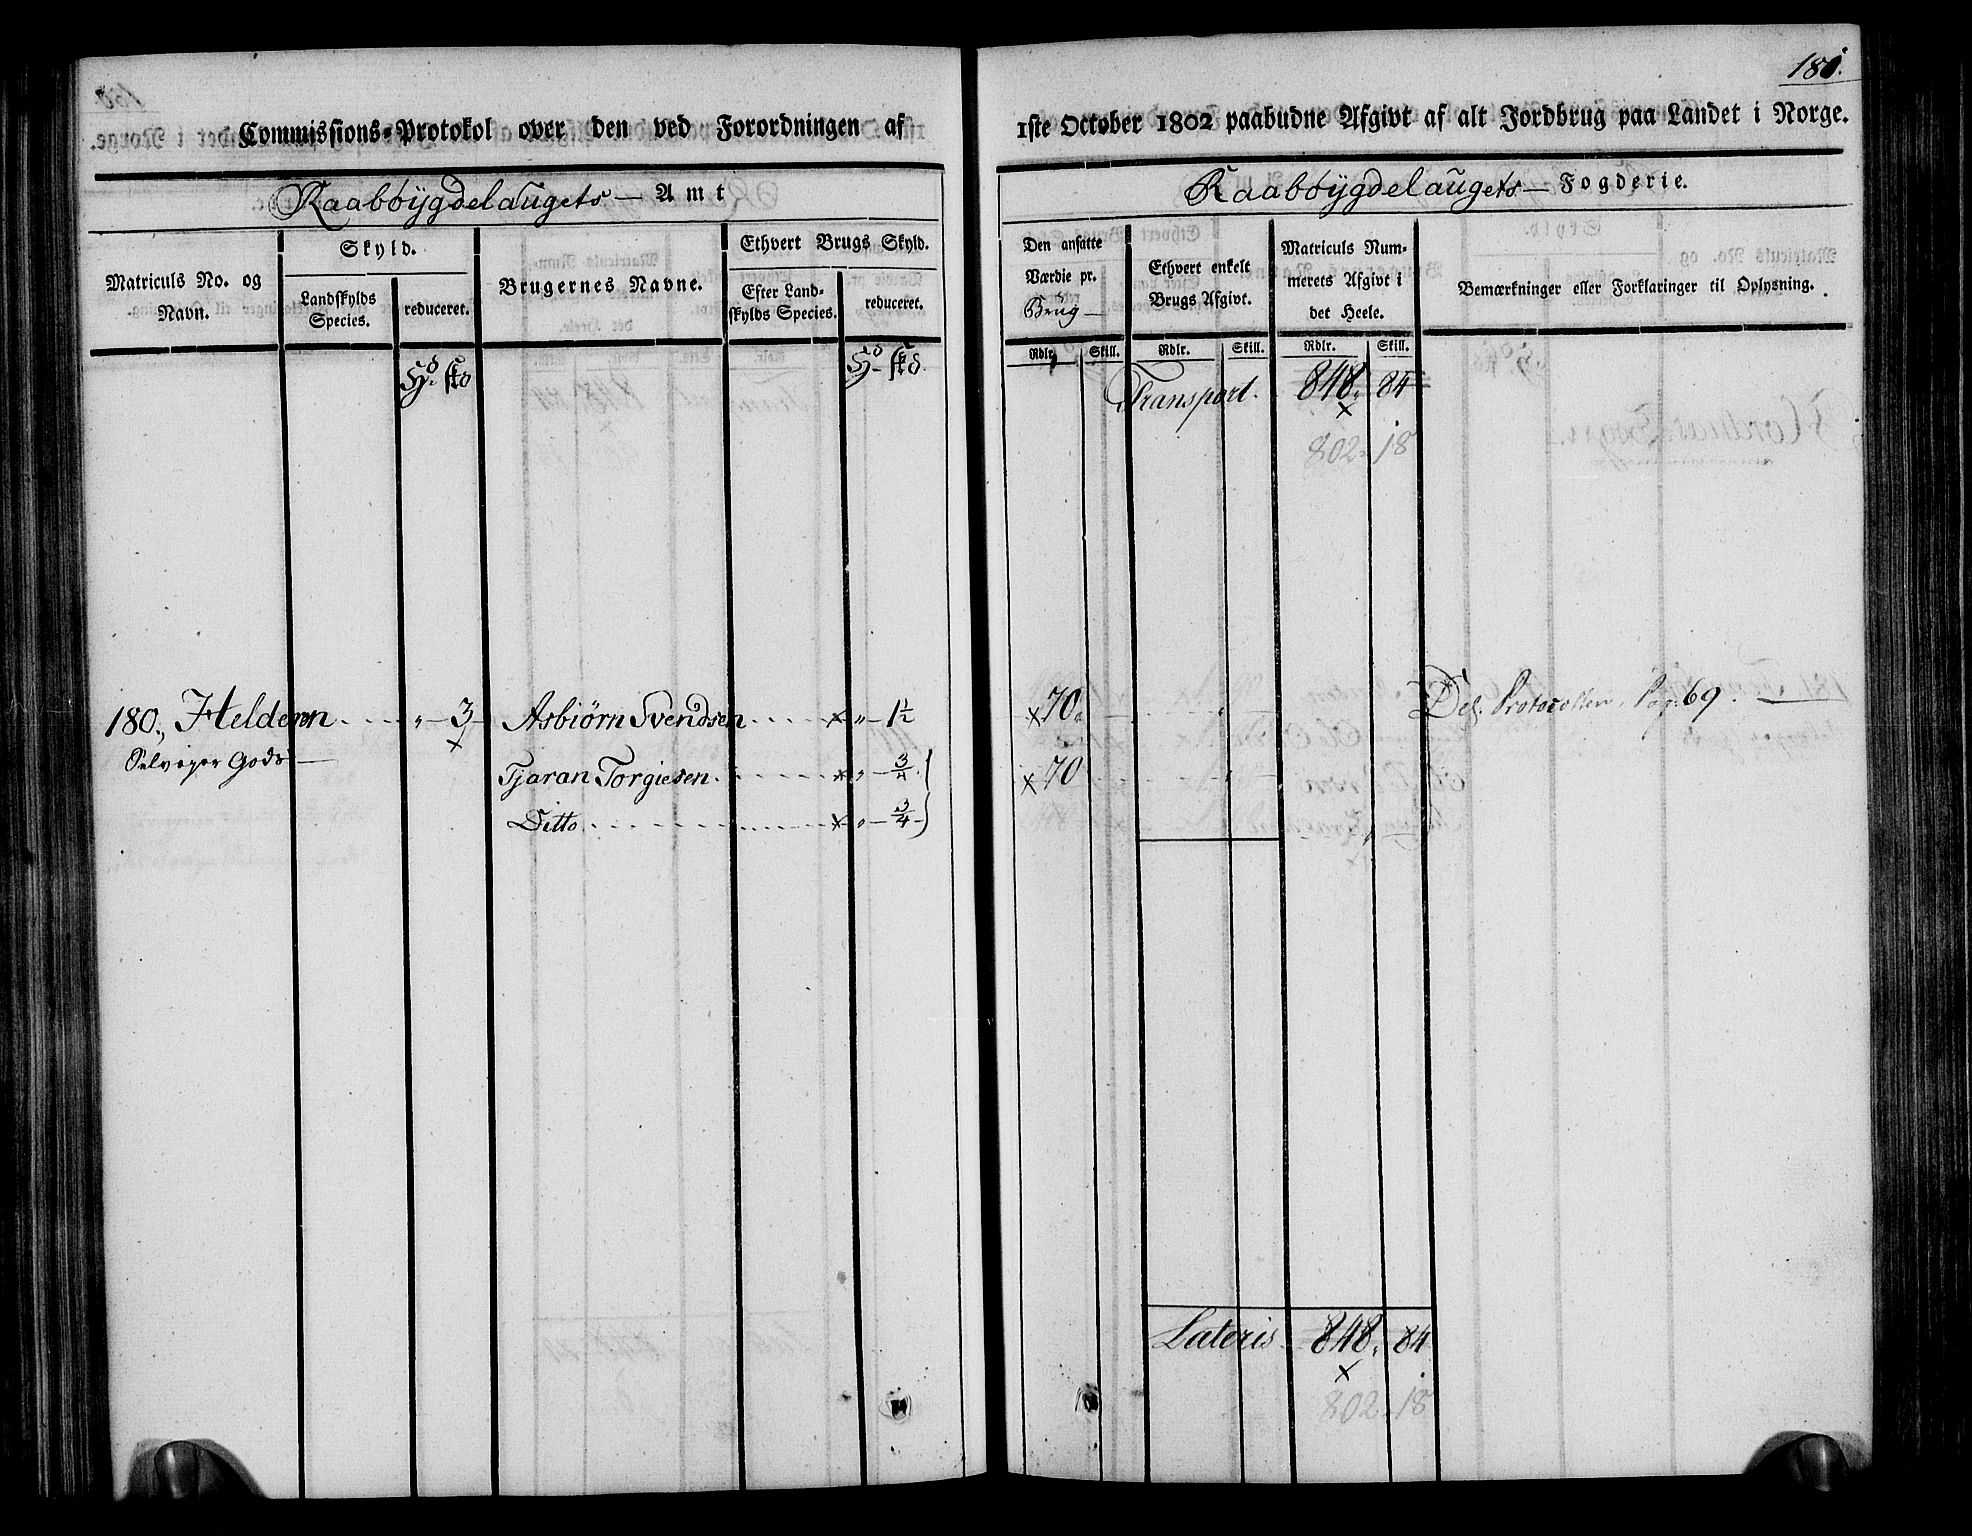 180.
Commissions-Protokol over den ved Forordningen af 1ste October 1802 paabudne Afgivt af alt Jordbrug paa Landet i Norge.
Raabøygdelaugets — Amt
Raabøygdelaugets — Fogderie.
Matriculs No. og Navn.
Skyld.
Landskylds Species.
reduceret.
Brugernes Navne.
Ethvert Brugs Skyld.
Efter Landskylds Species.
reduceret.
Den ansatte Værdie pr. Brug —
Ethvert enkelt Brugs Afgivt.
Matriculs Nummerets Afgivt i det Heele.
Bemærkninger eller Forklaringer til Oplysning.
Rdlr. Skill. Rdlr. Skill. Rdlr. Skill.
Hd skd Hd skd
Transport. 848. 84
x
802. 18
180., Heldenn . . . . „ 3 Asbiørn Svendsen . . . . x „ 1 1/2 x 70 „ Del. Protocollen, Pag. 69. —
x
Selveyer Gods —
Tjaran Torgiesen . . . . x „ 3/4 x 70 „
Ditto . . . . x „ 3/4
Lateris 848. 84
x
802. 18